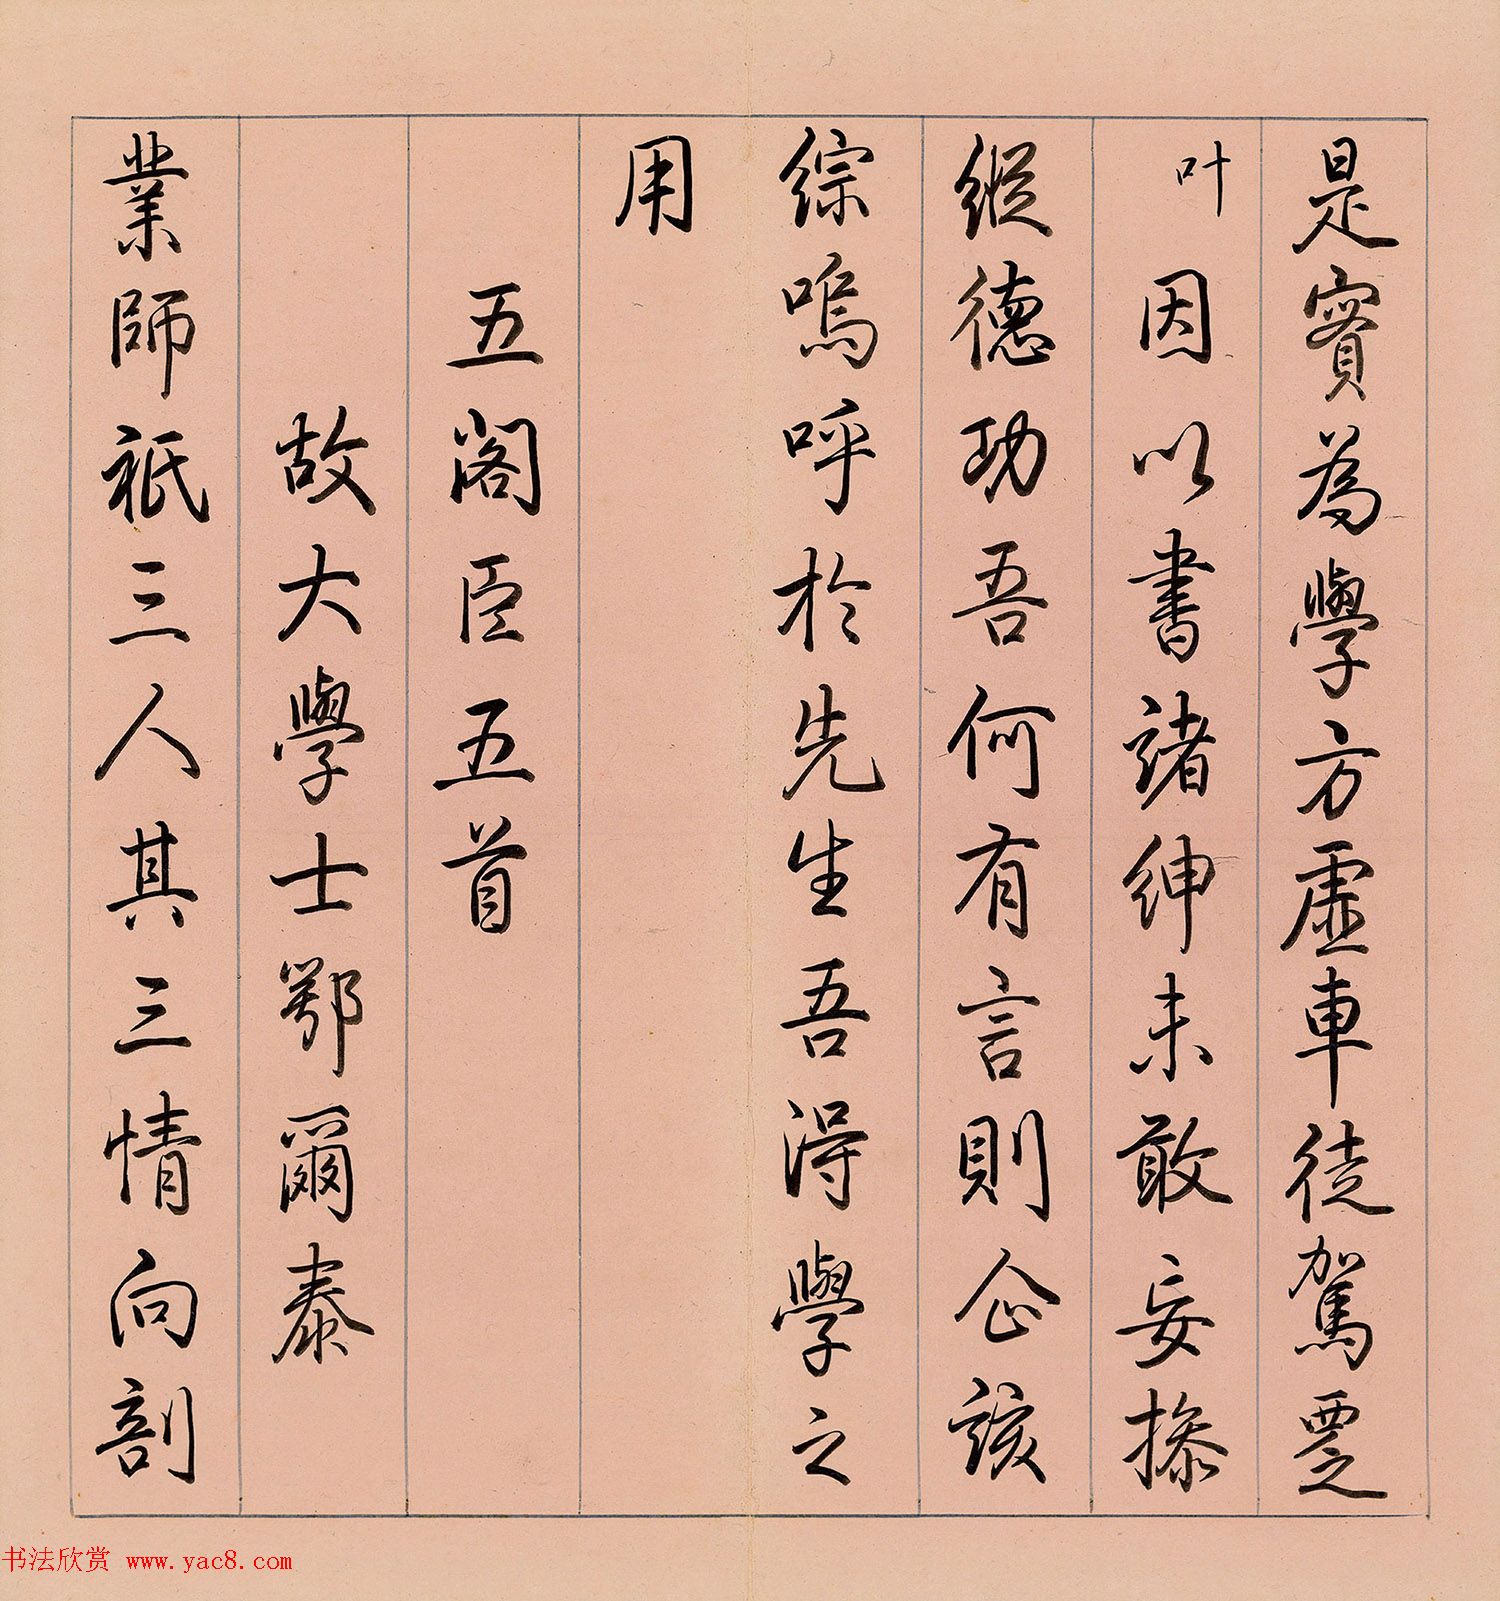 是賓為學方虛車徒駕覂
叶因以書諸紳未敢妄操
縱德功吾何有言則企該
綜嗚呼於先生吾得學之
用
五閣臣五首
故大學士鄂爾泰
業師祇三人其三情向剖
书法欣赏 www.yac8.com